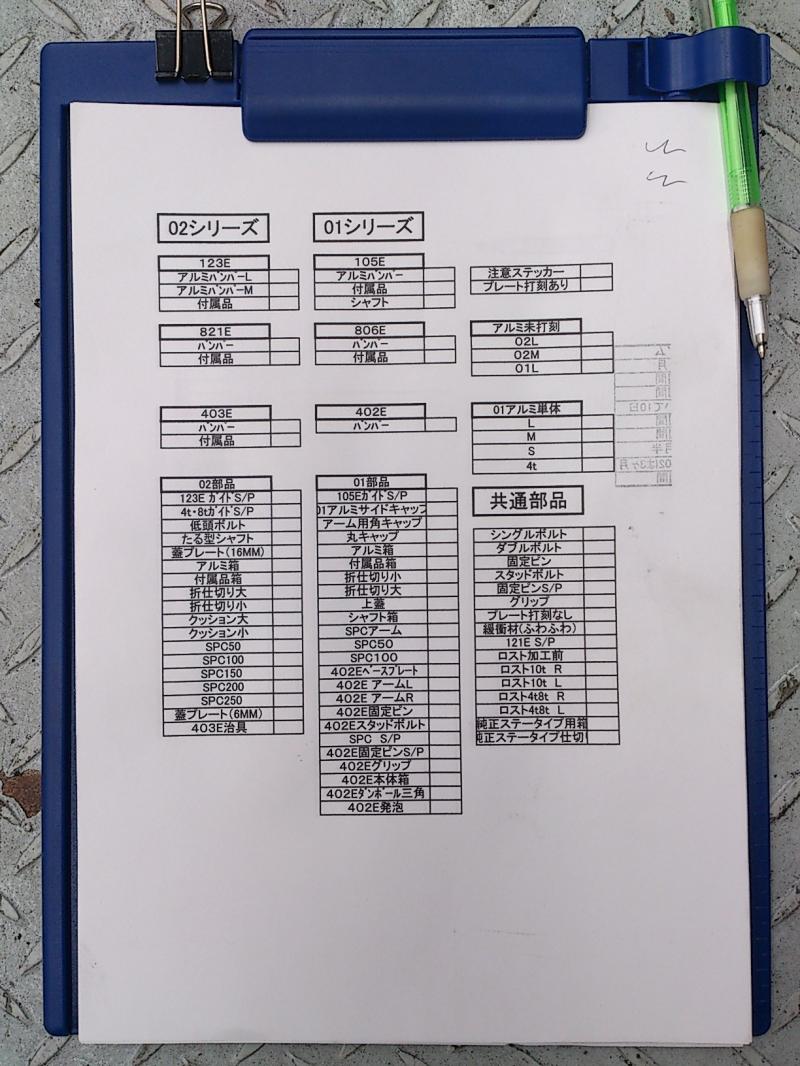 02シリーズ
123E
アルミバンパーL
アルミバンパーM
付属品
821E
バンパー
付属品
403E
バンパー
付属品
02部品
123E ガイドS/P
4t・8tガイドS/P
低頭ボルト
たる型シャフト
蓋プレート(16MM)
アルミ箱
付属品箱
折仕切り大
折仕切り小
クッション大
クッション小
SPC50
SPC100
SPC150
SPC200
SPC250
蓋プレート(6MM)
403E治具
01シリーズ
105E
アルミバンパー
付属品
シャフト
806E
バンパー
付属品
402E
バンパー
01部品
105EガイドS/P
01アルミサイドキャップ
アーム用角キャップ
丸キャップ
アルミ箱
付属品箱
折仕切り小
折仕切り大
上蓋
シャフト箱
SPCアーム
SPC50
SPC100
402Eベースプレート
402E アームL
402E アームR
402E固定ピン
402Eスタッドボルト
SPC S/P
402E固定ピンS/P
402Eグリップ
402E本体箱
402Eダンボール三角
402E発泡
注意ステッカー
プレート打刻あり
アルミ未打刻
02L
02M
01L
01アルミ単体
L
M
S
4t
共通部品
シングルボルト
ダブルボルト
固定ピン
スタッドボルト
固定ピンS/P
グリップ
プレート打刻なし
緩衝材(ふわふわ)
121E S/P
ロスト加工前
ロスト10t R
ロスト10t L
ロスト4t8t R
ロスト4t8t L
純正ステータイプ用箱
純正ステータイプ仕切り